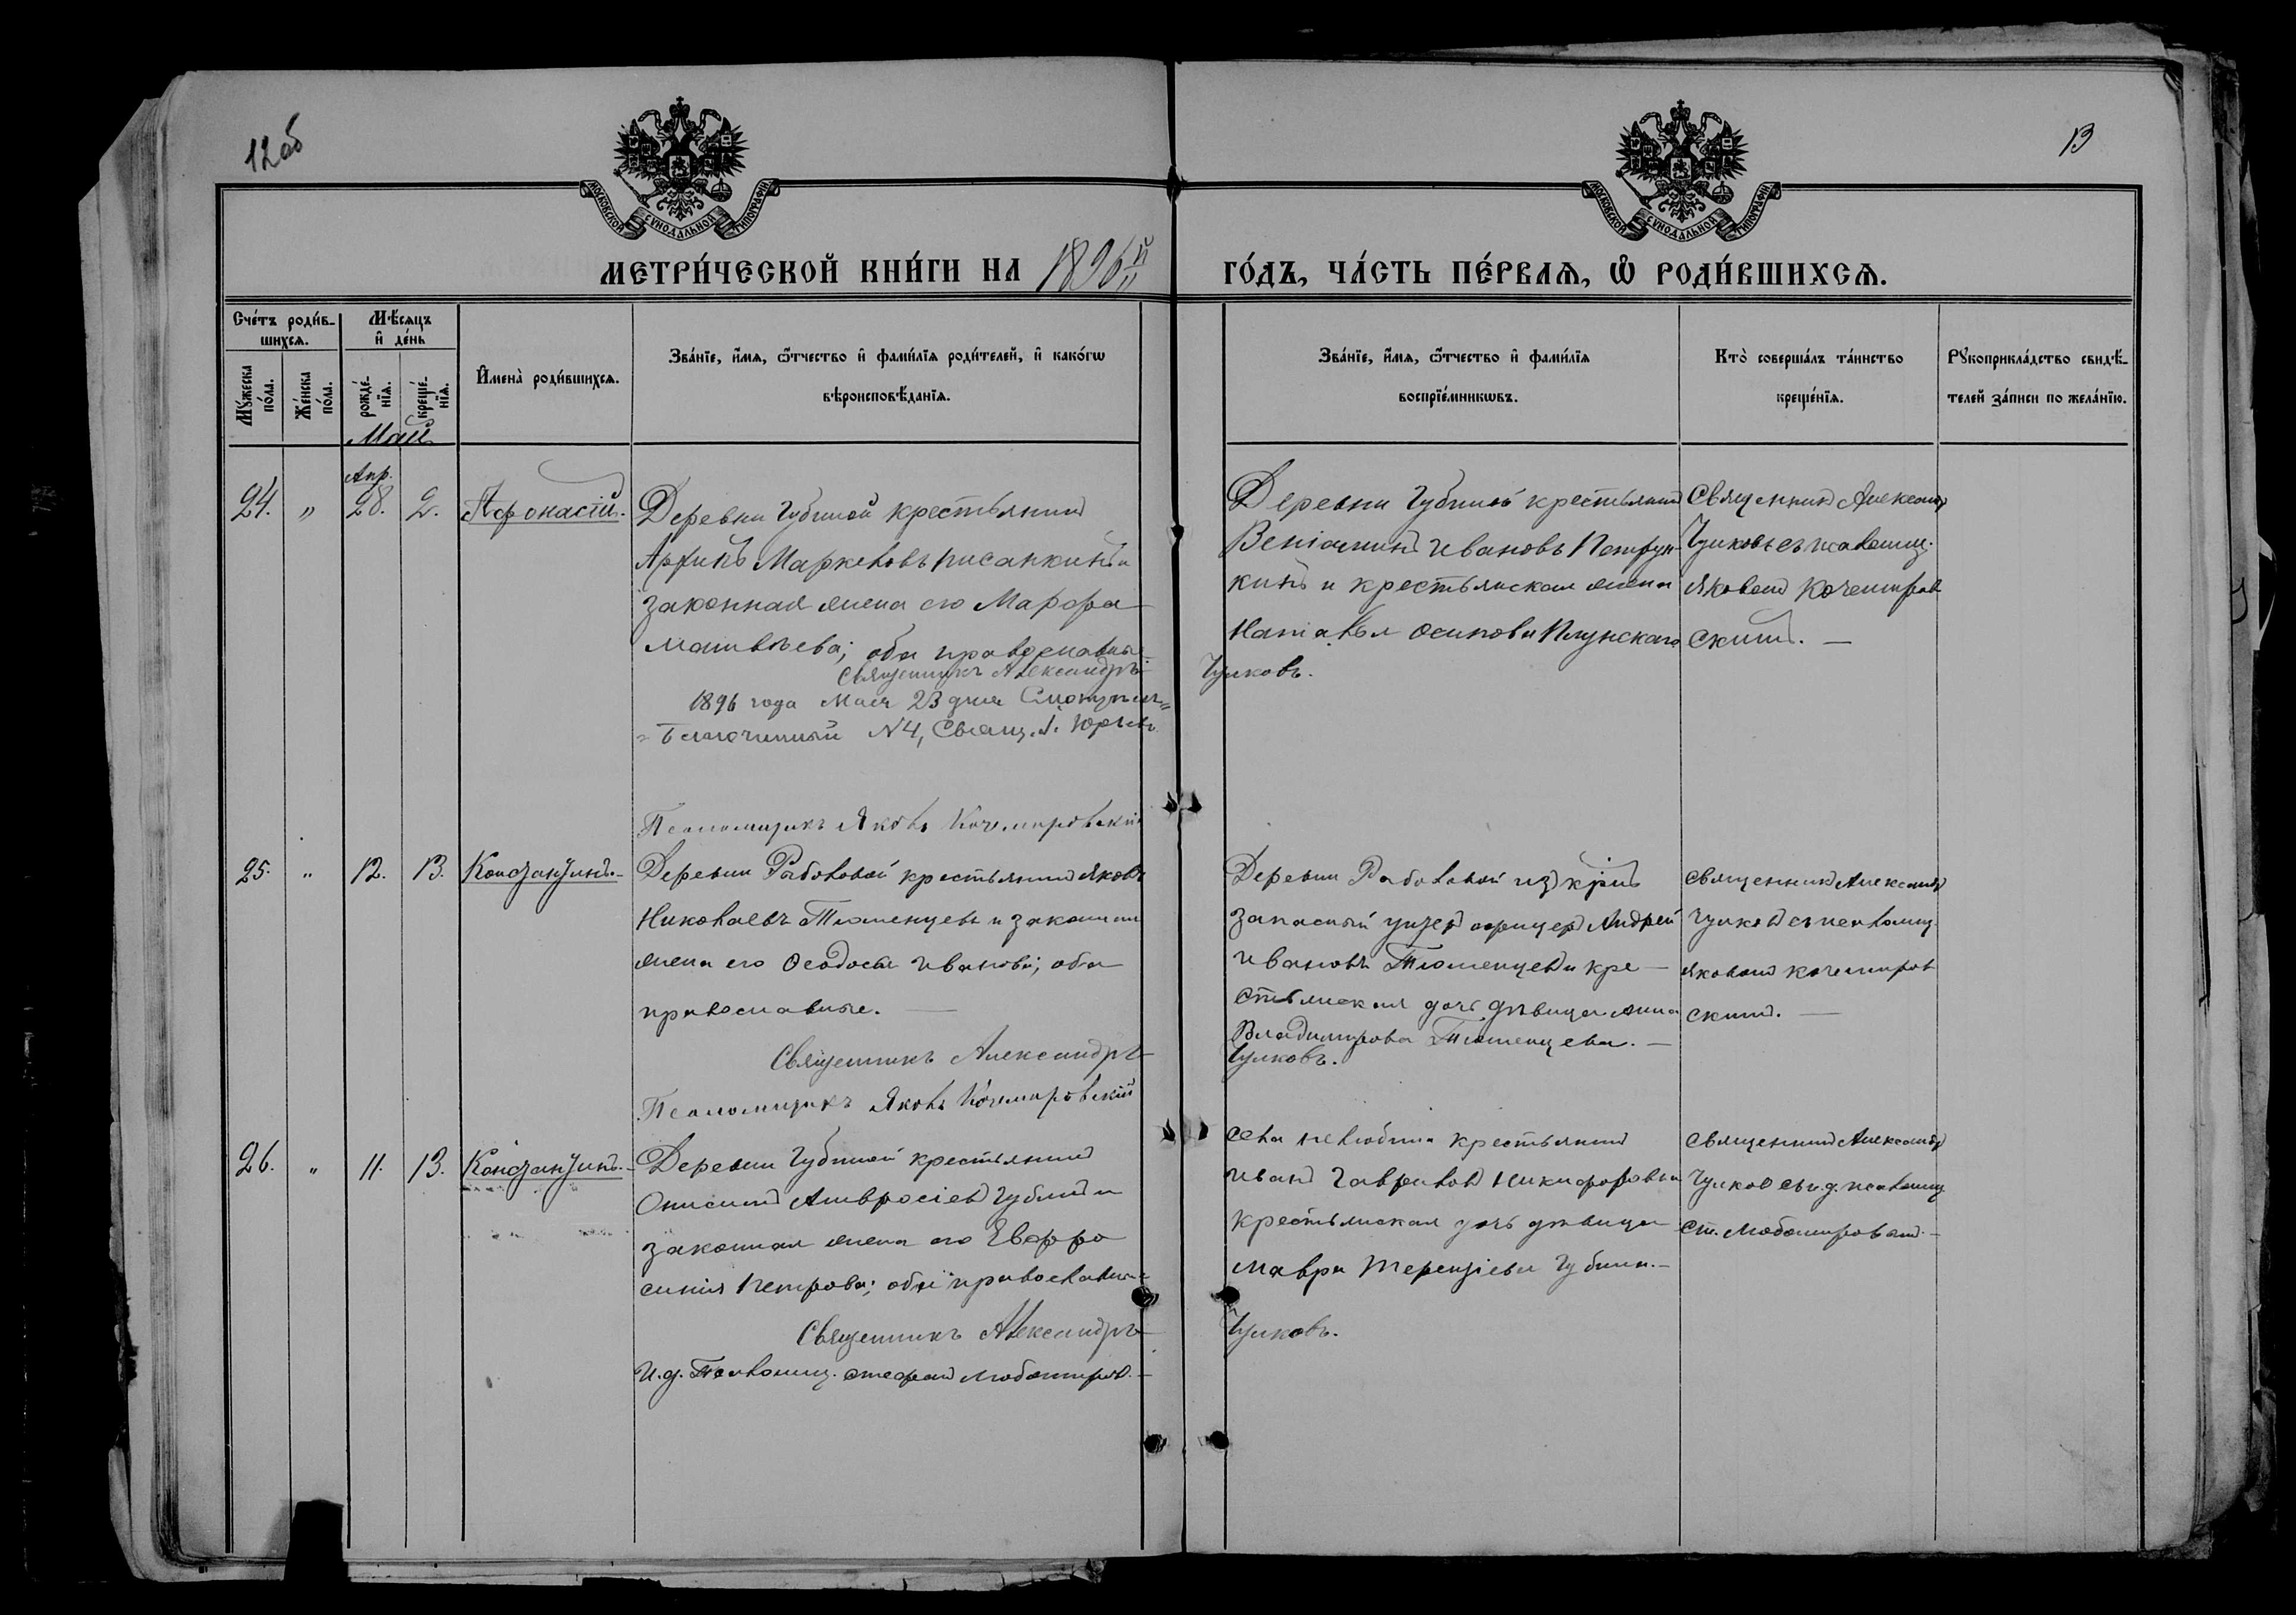 12об
13
МОСКОВСКОЙ СѴНОДАЛЬНОЙ ТИПОГРАФІИ
МОСКОВСКОЙ СѴНОДАЛЬНОЙ ТИПОГРАФІИ
МЕТРИ́ЧЕСКОЙ КНИ́ГИ НА 1896й
ГО́ДЪ, ЧА́СТЬ ПЕ́РВАѦ, Ѡ РОДИ́ВШИХСѦ.
Сче́тъ роди́в-
шихсѧ.
Му́жеска по́ла.
Же́нска по́ла.
Мѣ́сѧцъ
и҆ де́нь
рожде́-
нїѧ.
креще́-
нїѧ.
Май
И҆мена̀ роди́вшихсѧ.
Зва́нїе, и҆́мѧ, ѻ҆́тчество и҆ фами́лїѧ роди́телей, и҆ како́гѡ
вѣроисповѣ́данїѧ.
Зва́нїе, и҆́мѧ, ѻ҆́тчество и҆ фами́лїѧ
воспрїе́мникѡвъ.
Кто̀ соверша́лъ та́инство
креще́нїѧ.
Рꙋкоприкла́дство свидѣ́-
телей за́писи по жела́нїю.
24. „ Апр. 28. 2. Афонасій.
Деревни Губиной крестьянинъ
Маркеловъ Писанкинъ и
законная жена его Марфа
Матвѣева; оба православные
Священникъ Александръ
1896 года Мая 23 дня
Благочинный №4, Свящ.
Псаломщикъ Яковъ Кочемировскій
Деревни Губиной крестьянинъ
Веніаминъ Ивановъ
кинъ и крестьянская жена
Наталья Осипова
Чулковъ.
Священникъ Александръ
Чулковъ съ псаломщ.
Яковомъ Кочемиров
скимъ. —
25. „ 12. 13. Константинъ.
Деревни крестьянинъ Яковъ
Николаевъ Тюменцевъ и законная
жена его Ѳеодосья Иванова; оба
православные. —
Священникъ Александръ
Псаломщикъ Яковъ Кочемировскій
Деревни из кр.
запасный унтеръ офицеръ Андрей
Ивановъ Тюменцевъ и кре-
стьянская дочь дѣвица Анна
Владимирова Тюменцева. —
Чулковъ.
Священникъ Александръ
Чулковъ съ псаломщ.
Яковомъ Кочемиров
скимъ. —
26. „ 11. 13. Константинъ.
Деревни Губиной крестьянинъ
Амвросіевъ Губинъ и
законная жена его Евфро
синія Петрова; оба православные
Священникъ Александръ
И.д. Псаломщ. Стефанъ
Села крестьянинъ
Иванъ Гавриловъ Никифоровъ и
крестьянская дочь дѣвица
Мавра Терентіева Губина. —
Чулковъ.
Священникъ Александръ
Чулковъ съ и.д. псаломщ.
Ст.